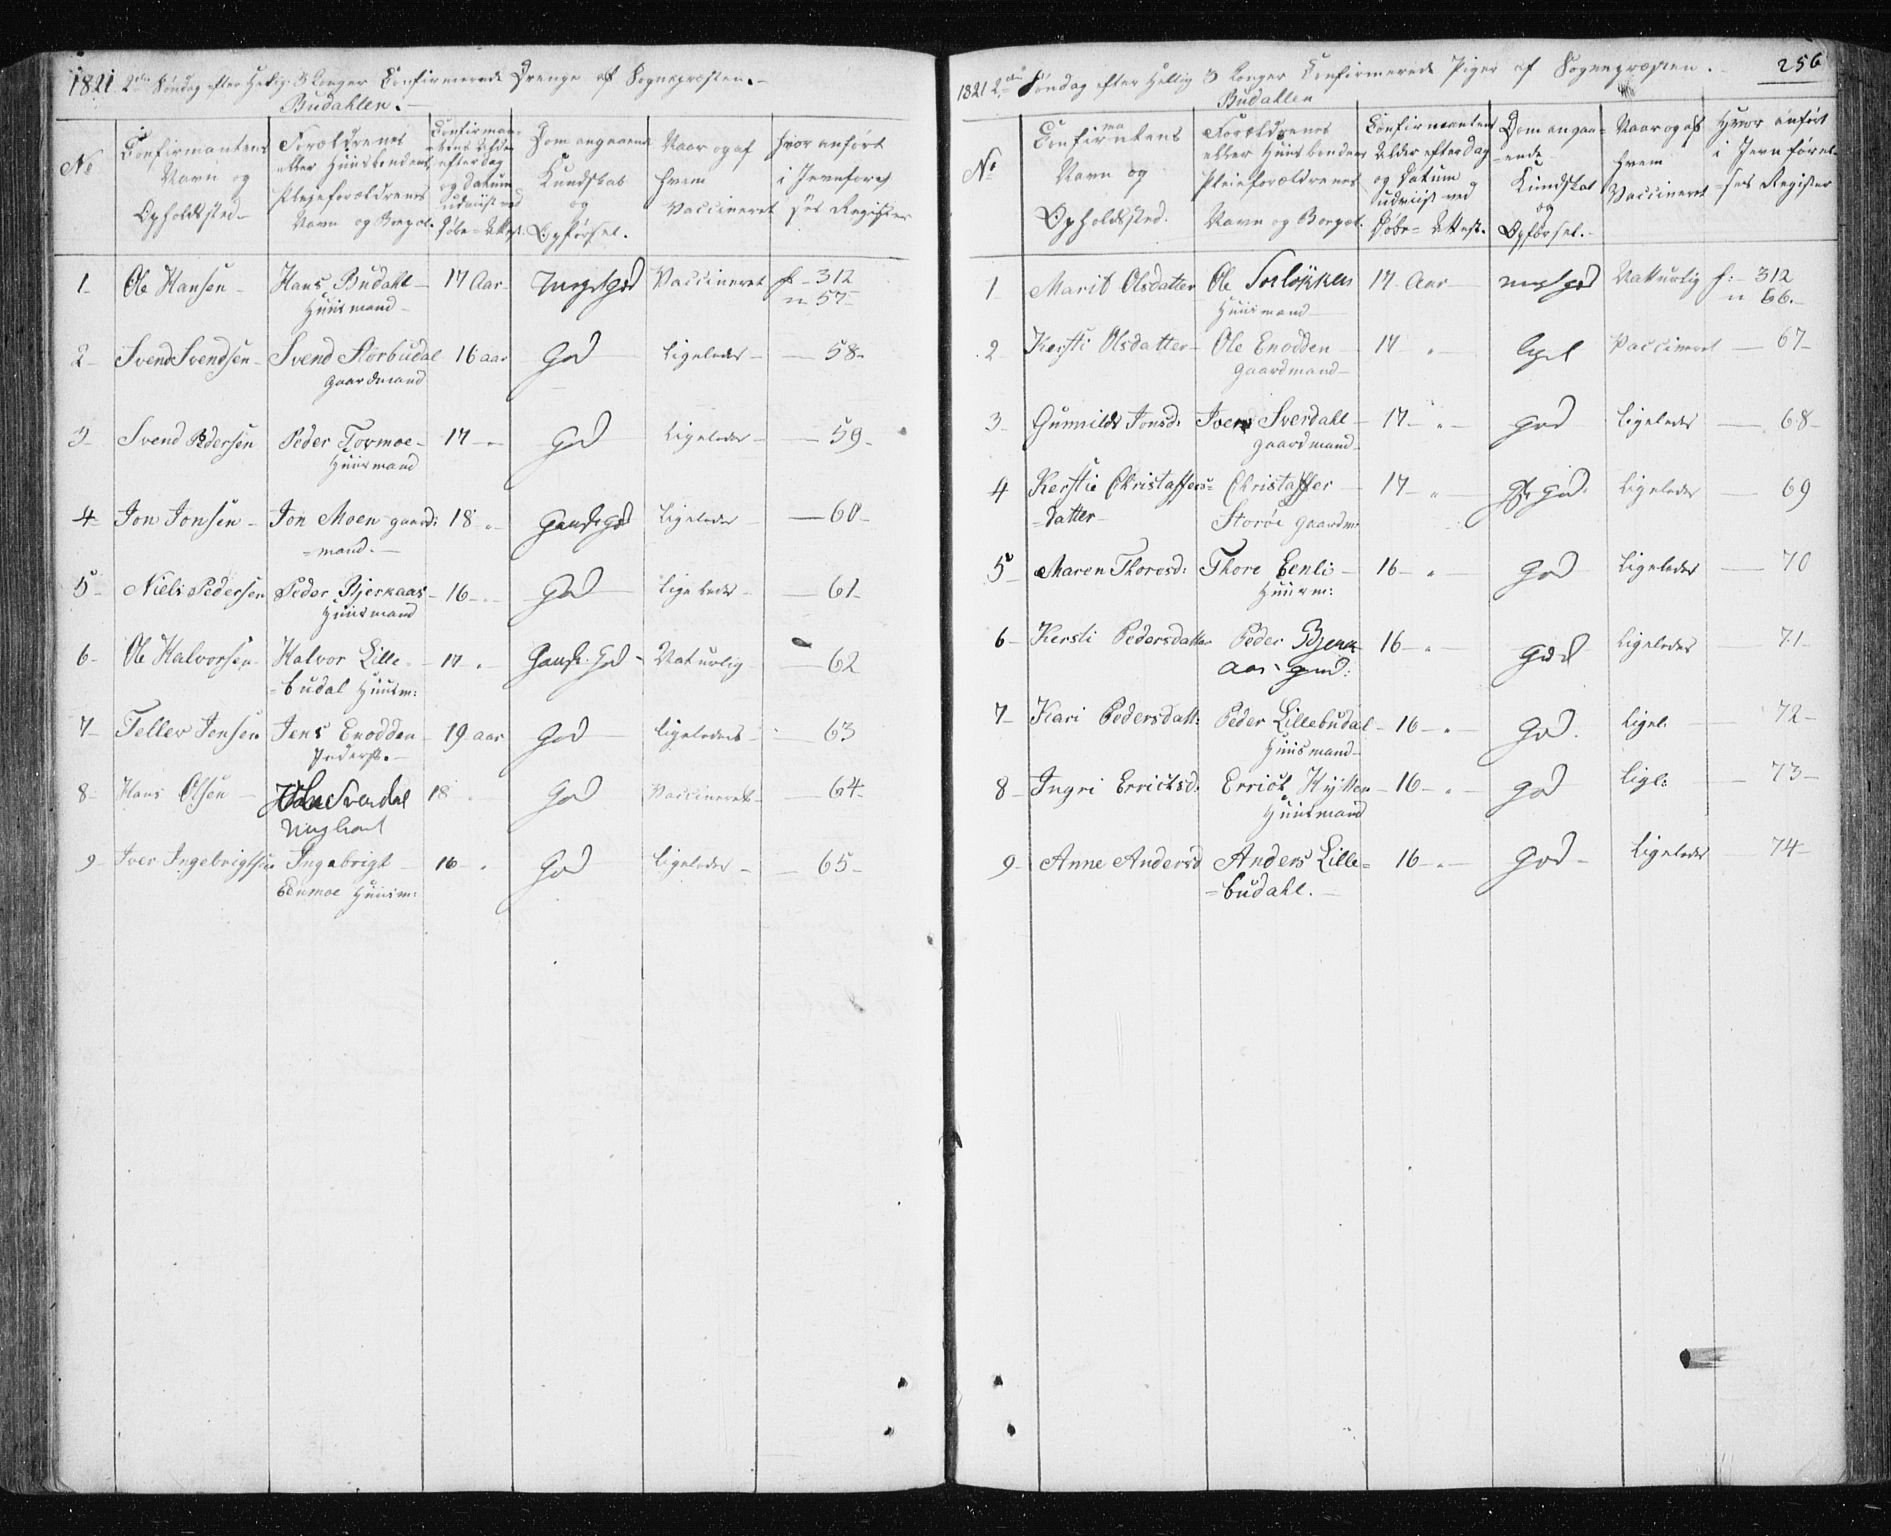 1821 2den Søndag efter Hellig 3 Konger Confirmerede Drenge af Sognepræsten.
Budahlen.
No
Confirmantens Navn og Opholdsted
Forældrenes eller Huusbondens Plejeforældrenes Navn og Boepæl.
Confirmantens Alder efter Dag og Datum udviist ved Døbe-Attest.
Dom angaaende Kundskab og Opførsel.
Naar og af hvem Vaccineret
Hvor anført i Jevnførelses Register
1 Ole Hansen Hans Budahl 17 Aar meget god Vaccineret f. 312
Huusmand n 57
2 Svend Svendsen Svend Storbudal 16 aar God ligeledes 58
Gaardmand
3 Svend Pedersen Peder Tormoe 17 " God Ligeledes 59
Huusmand
4 Jon Jonsen Jon Moen gaard: 18 " Gandsk God Ligeledes 60
=mand.
5 Niels Pedersen Peder Bjerkaas 16 " God Ligeledes 61
Huusmand
6 Ole Halvorsen Halvor Lille= 17 " Gansk. God Naturlig 62
=budal Huusm:
7 Tellev Jensen Jens Enodden 19 aar God ligeledes 63
Inderst.
8 Hans Olsen Ole Sverdal 18 God Vaccineret 64
9 Iver Ingebrigtsen Ingebrigt 16 " God ligeledes 65
Eenmoe Huusm:
256
1821 2den Søndag efter Hellig 3 Konger Confirmerede Piger af Sognepræsten.
Budahlen
No
Confirmantens Navn og Opholdsted.
Forældrenes eller Huusbondens Pleieforældrenes Navn og Boepæl.
Confirmantens Alder efter Dag og Datum udviist ved Døbe-Attest.
Dom angaaende Kundskab og Opførsel.
Naar og af hvem Vaccineret
Hvor anført i Jevnførelses Register
1 Marit Olsdatter Ole 17 Aar meget god Natturlig f: 312
Huusmand n 66.
2 Kersti Olsdatter Ole Enodden 17 " Vaccineret 67
Gaardmand
3 Gunnilds Jonsd: Sverdahl 17 " god ligeledes 68
gaardmand
4 Kerstie Christaffers= Christaffer 17 " god. ligeledes 69
=datter Storøe gaardm:
5 Maren Thoresd: Thore Eenli 16 " God ligeledes 70
Huusm:
6 Kersti Pedersdatter Peder Bjerk 16 " God ligeledes 71
aas gmd:
7 Kari Pedersdatt: Peder Lillebudal 16 " God. ligel: 72
Huusmand
8 Ingri Errictsd: Errict Kytten 16 " God ligl: 73
Huusmand
9 Anne Andersd Anders Lille= 16 " God ligeledes 74
=budahl.